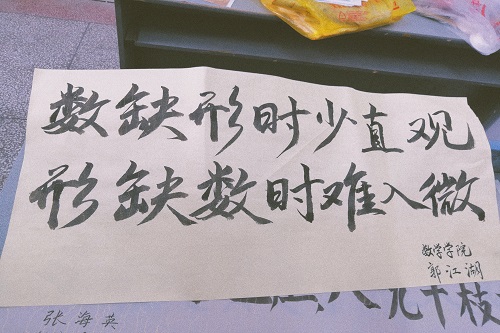 数缺形时少直观
形缺数时难入微
数学学院
郭江湖
张海英